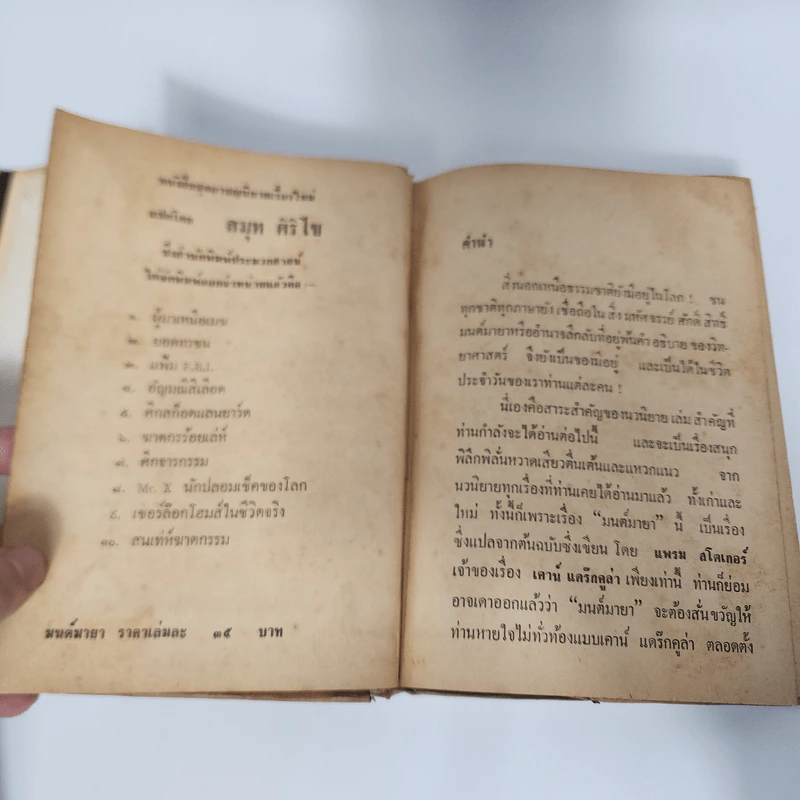 หนังสือชุดอาชญนิยายเรื่องใหม่
แปลโดย สมุท ศิริไข
ซึ่งสำนักพิมพ์ประมวลสาส์น
ได้จัดพิมพ์ออกจำหน่ายแล้วคือ —
๑. ผู้มาเหนือเมฆ
๒. ยอดทรชน
๓. แฟ้ม F.B.I.
๔. อัญมณีสีเลือด
๕. ศึกสก็อตแลนยาร์ด
๖. ฆาตกรร้อยเล่ห์
๗. ศึกจารกรรม
๘. Mr. X นักปลอมเช็คของโลก
๙. เชอร์ล๊อกโฮมส์ในชีวิตจริง
๑๐. สนเท่ห์ฆาตกรรม
มนต์มายา ราคาเล่มละ ๓๕ บาท
คำนำ
สิ่งนอกเหนือธรรมชาติยังมีอยู่ในโลก ! ชน
ทุกชาติทุกภาษายัง เชื่อถือใน สิ่ง มหัศจรรย์ ศักดิ์ สิทธิ์
มนต์มายาหรืออำนาจลึกลับที่อยู่พ้นคำ อธิบาย ของวิท-
ยาศาสตร์ จึงยังเป็นของมีอยู่ และเป็นได้ในชีวิต
ประจำวันของเราท่านแต่ละคน !
นี่เองคือสาระสำคัญของนวนิยาย เล่ม สำคัญที่
ท่านกำลังจะได้อ่านต่อไปนี้ และจะเป็นเรื่องสนุก
พิลึกพิลั่นหวาดเสียวตื่นเต้นและแหวกแนว จาก
นวนิยายทุกเรื่องที่ท่านเคยได้อ่านมาแล้ว ทั้งเก่าและ
ใหม่ ทั้งนี้ก็เพราะเรื่อง “มนต์มายา” นี้ เป็นเรื่อง
ซึ่งแปลจากต้นฉบับซึ่งเขียน โดย แพรม สโตเกอร์
เจ้าของเรื่อง เคาน์ แดร๊กคูล่า เพียงเท่านี้ ท่านก็ย่อม
อาจเดาออกแล้วว่า “มนต์มายา” จะต้องสั่นขวัญให้
ท่านหายใจไม่ทั่วท้องแบบเคาน์ แดร๊กคูล่า ตลอดตั้ง